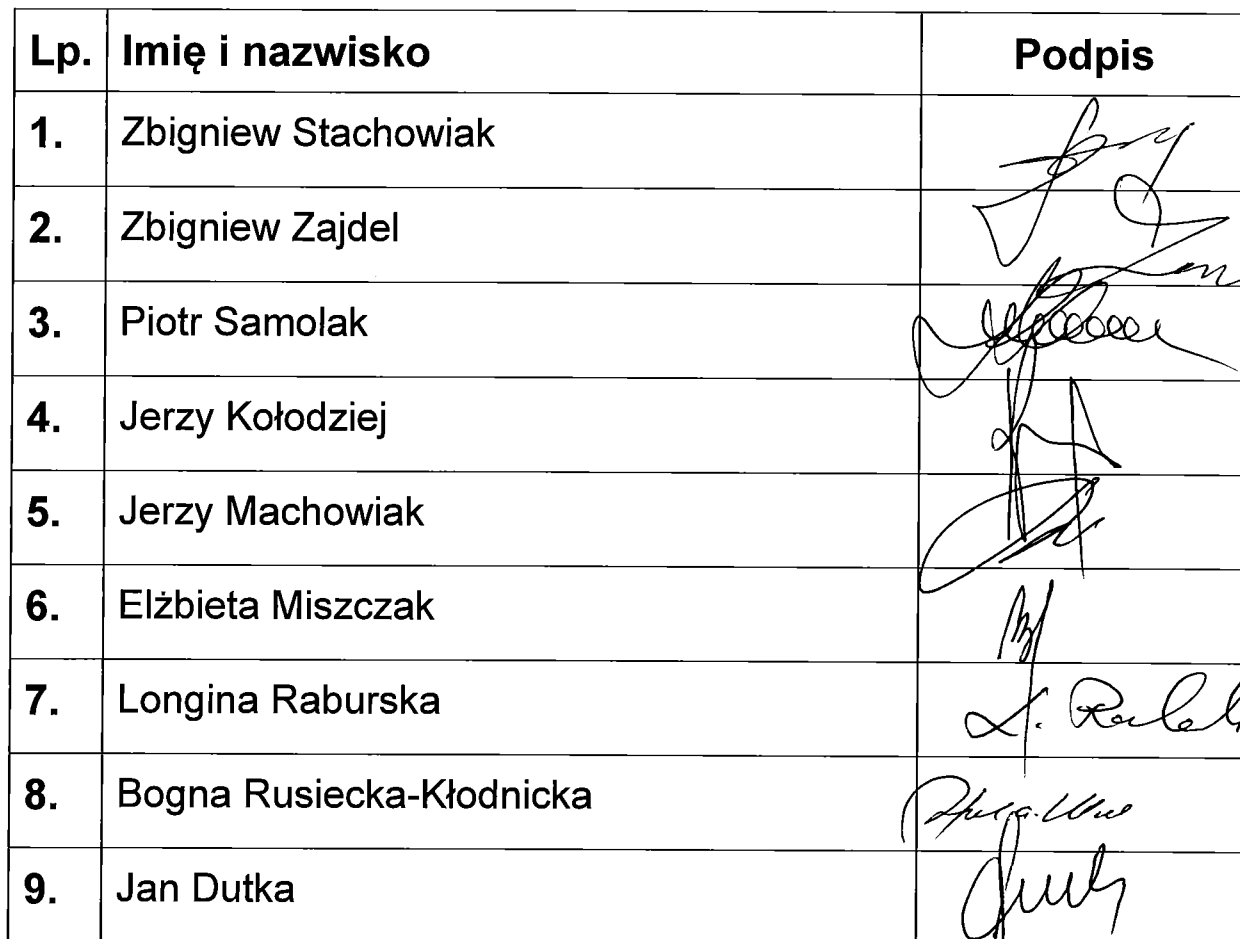 Lp. Imię i nazwisko Podpis
1. Zbigniew Stachowiak
2. Zbigniew Zajdel
3. Piotr Samolak
4. Jerzy Kołodziej
5. Jerzy Machowiak
6. Elżbieta Miszczak
7. Longina Raburska
8. Bogna Rusiecka-Kłodnicka
9. Jan Dutka